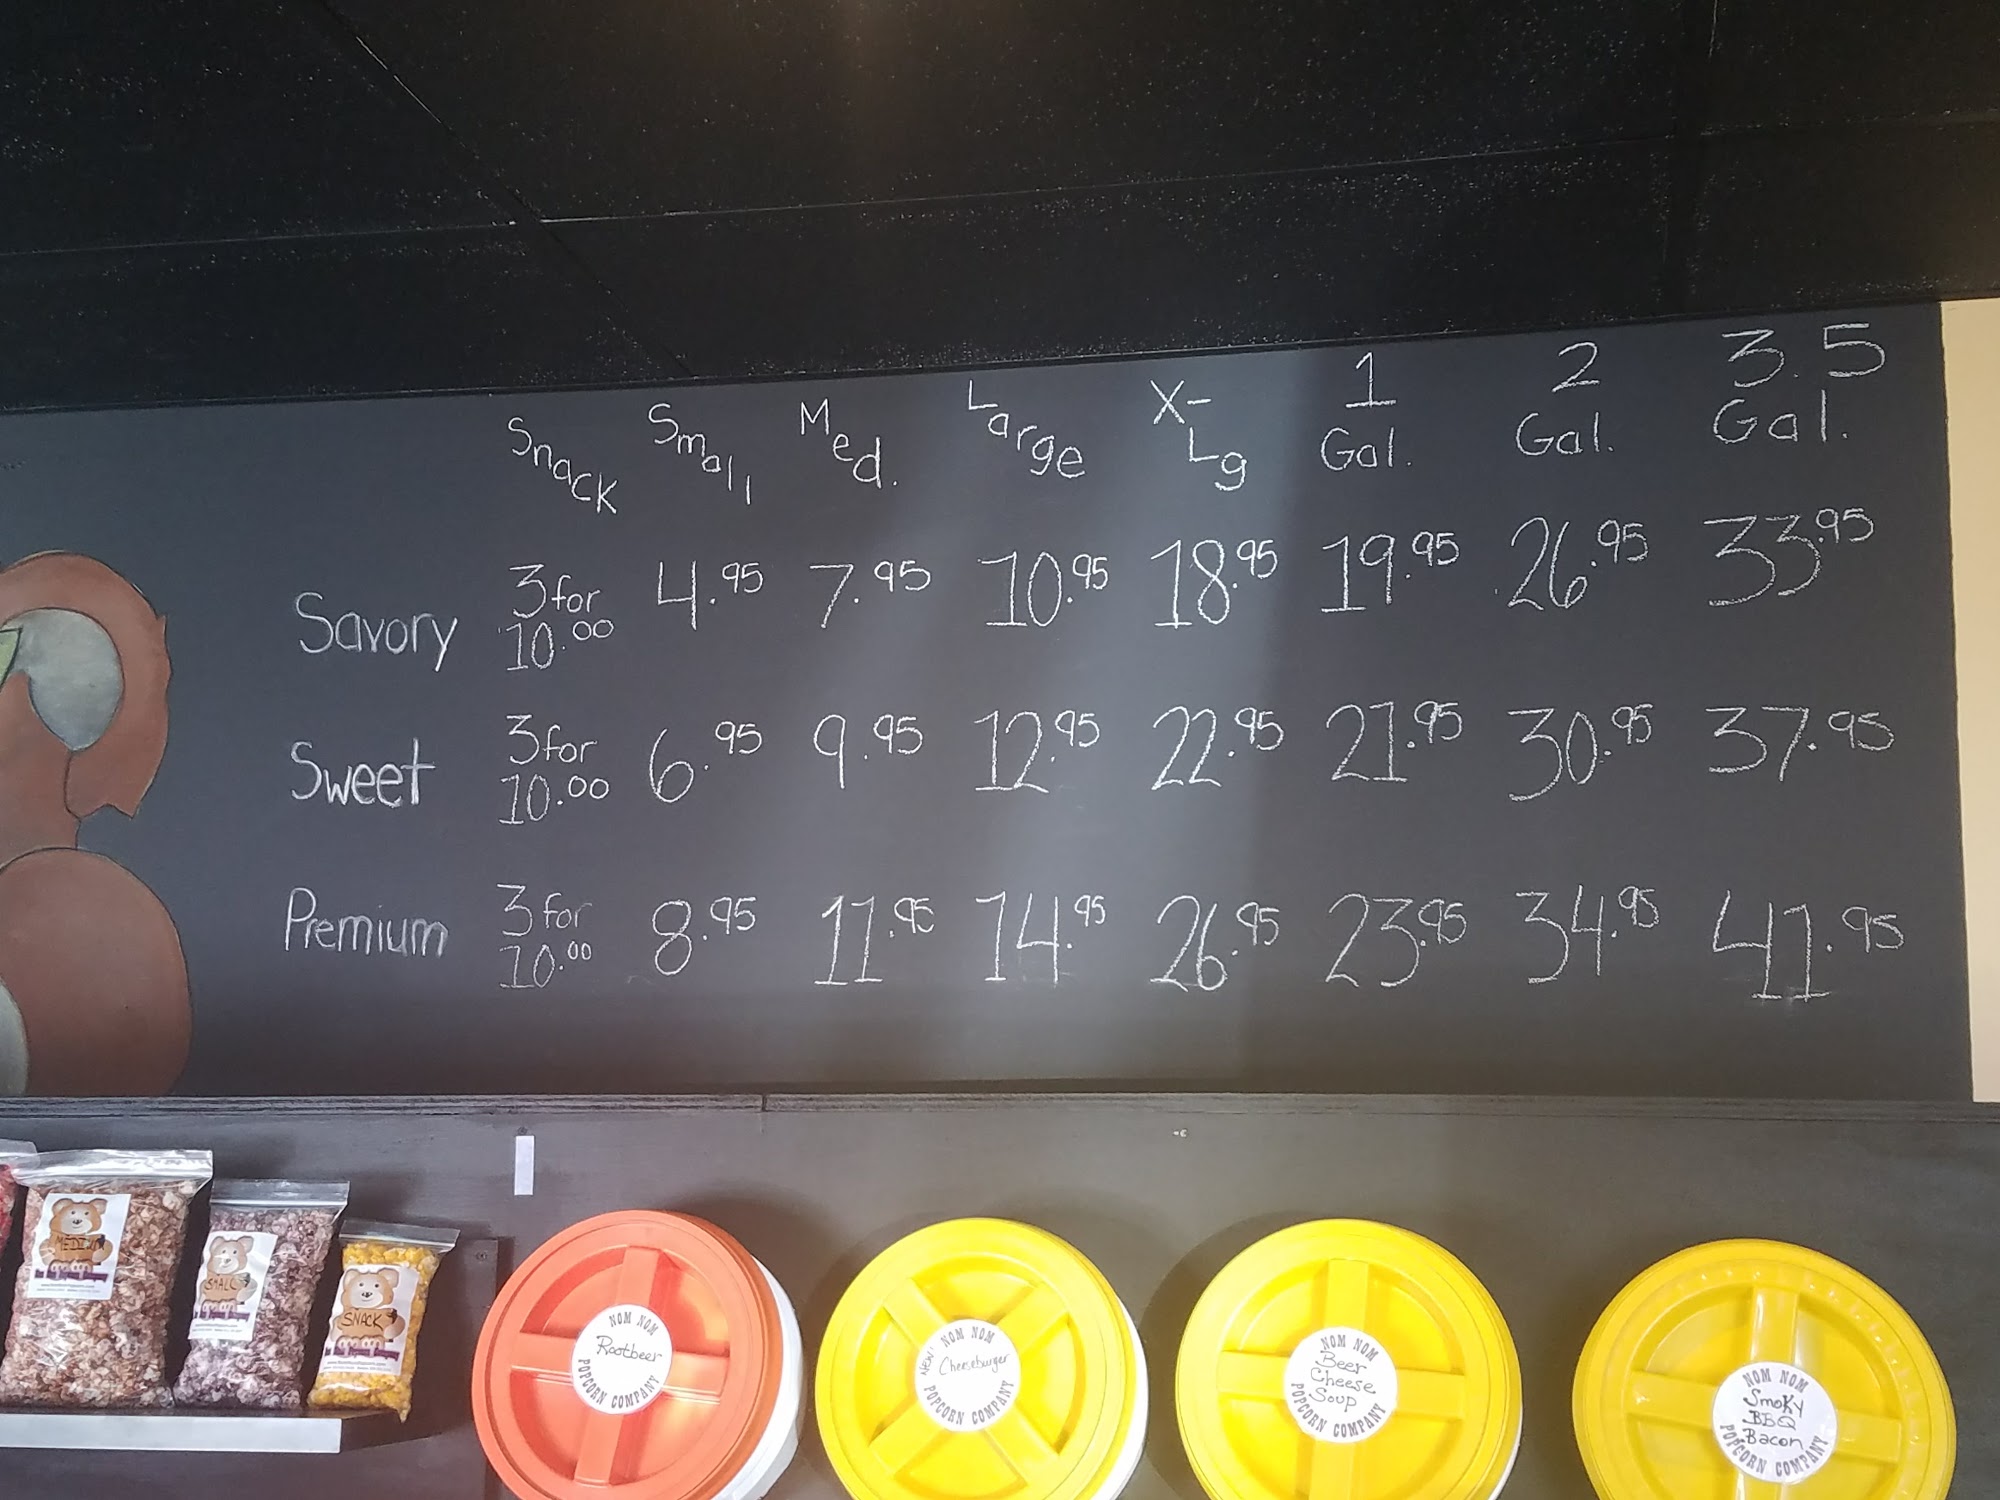 Snack Small Med. Large X-Lg 1 Gal. 2 Gal. 3.5 Gal.
Savory 3 for 10.00 4.95 7.95 10.95 18.95 19.95 26.95 33.95
Sweet 3 for 10.00 6.95 9.95 12.95 22.95 21.95 30.95 37.95
Premium 3 for 10.00 8.95 11.95 14.95 26.95 23.95 34.95 41.95
MEDIUM
SMALL
SNACK
NOM NOM
Rootbeer
POPCORN COMPANY
NOM NOM
NEW!
Cheeseburger
POPCORN COMPANY
NOM NOM
Beer
Cheese
Soup
POPCORN COMPANY
NOM NOM
Smoky
BBQ
Bacon
POPCORN COMPANY